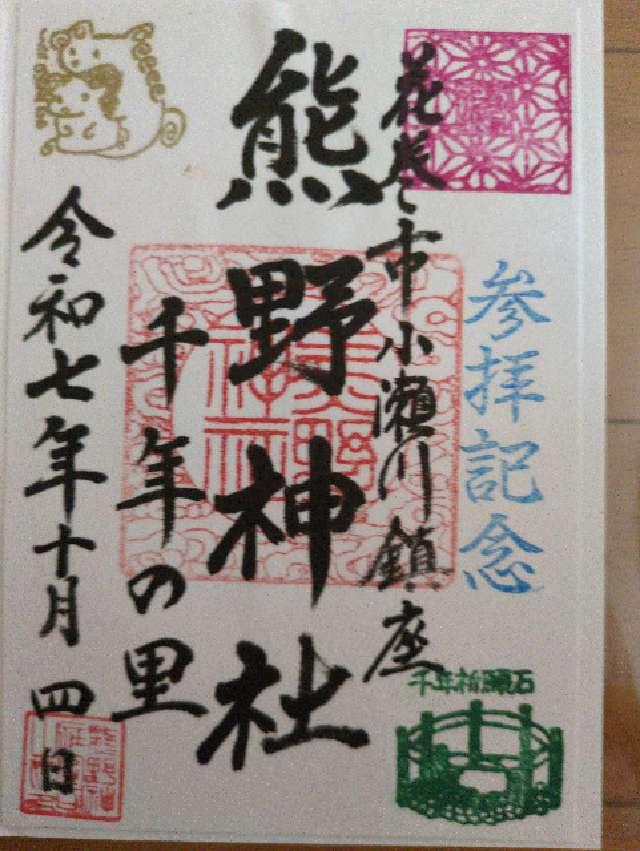 参拝記念
花巻市小瀬川鎮座
熊野神社
千年の里
令和七年十月四日